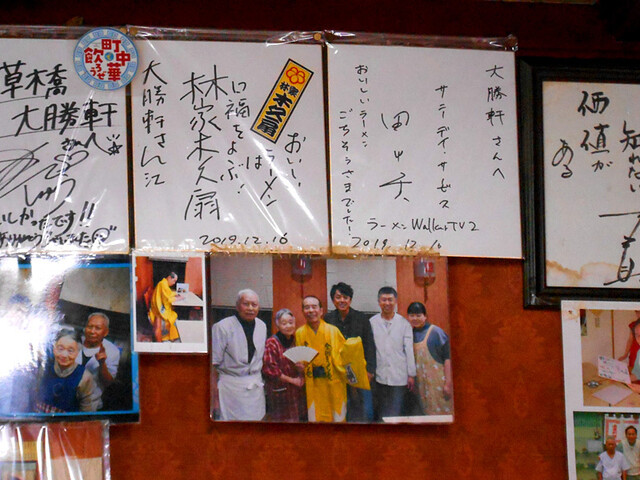 町中華で
飲ろうぜ
草木橋
大勝軒
さんへ
しかったです!!
大勝軒さん江
林家木久扇
林家
木久扇
おいしい
ラーメン
は
口福をよぶ!
2019.12.16
大勝軒さんへ
サニーデイ・サービス
田中 貴
おいしいラーメン
ごちそうさまでした!
ラーメンWalkerTV2
2019.12.16
知れない
価値が
ある